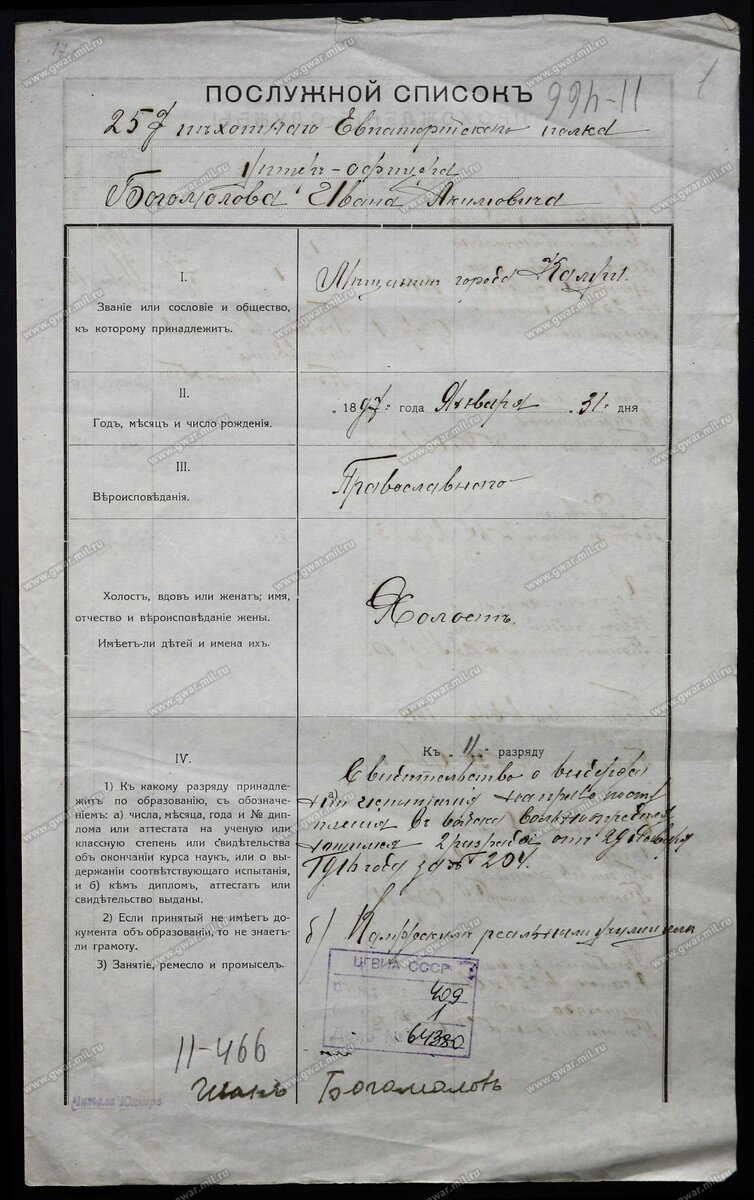 17
ПОСЛУЖНОЙ СПИСОКЪ
11-466
1
257 пѣхотнаго Евпаторійскаго полка
унтеръ-офицера
Богомолова Ивана Акимовича
I.
Званіе или сословіе и общество,
къ которому принадлежитъ.
Мѣщанинъ города Калуги.
II.
Годъ, мѣсяцъ и число рожденія.
„ 1897 " года Января „ 31 " дня
III.
Вѣроисповѣданія.
Православнаго
Холостъ, вдовъ или женатъ; имя,
отчество и вѣроисповѣданіе жены.
Имѣетъ-ли дѣтей и имена ихъ.
Холостъ.
IV.
1) Къ какому разряду принадле-
житъ по образованію, съ обозначе-
ніемъ: а) числа, мѣсяца, года и № ди-
плома или аттестата на ученую или
классную степень или свидѣтельства
объ окончаніи курса наукъ, или о вы-
держаніи соотвѣтствующаго испытанія,
и б) кѣмъ дипломъ, аттестатъ или
свидѣтельство выданы.
2) Если принятый не имѣетъ до-
кумента объ образованіи, то не знаетъ-
ли грамоту.
3) Занятіе, ремесло и промыселъ.
Къ „ II " разряду
а) Свидѣтельство о выдержа
ніи испытанія на право посту
пленія въ войска вольноопредѣля
ющимся 2 разряда отъ 29
1916 года за № 204.
б) Калужскимъ реальнымъ училищемъ
ЦГВИА СССР
ФОНД № 409
ОПИСЬ № 1
ДЕЛО № 64380
11-466
Читалъ Юнкеръ
Иванъ Богомоловъ
www.gwar.mil.ru